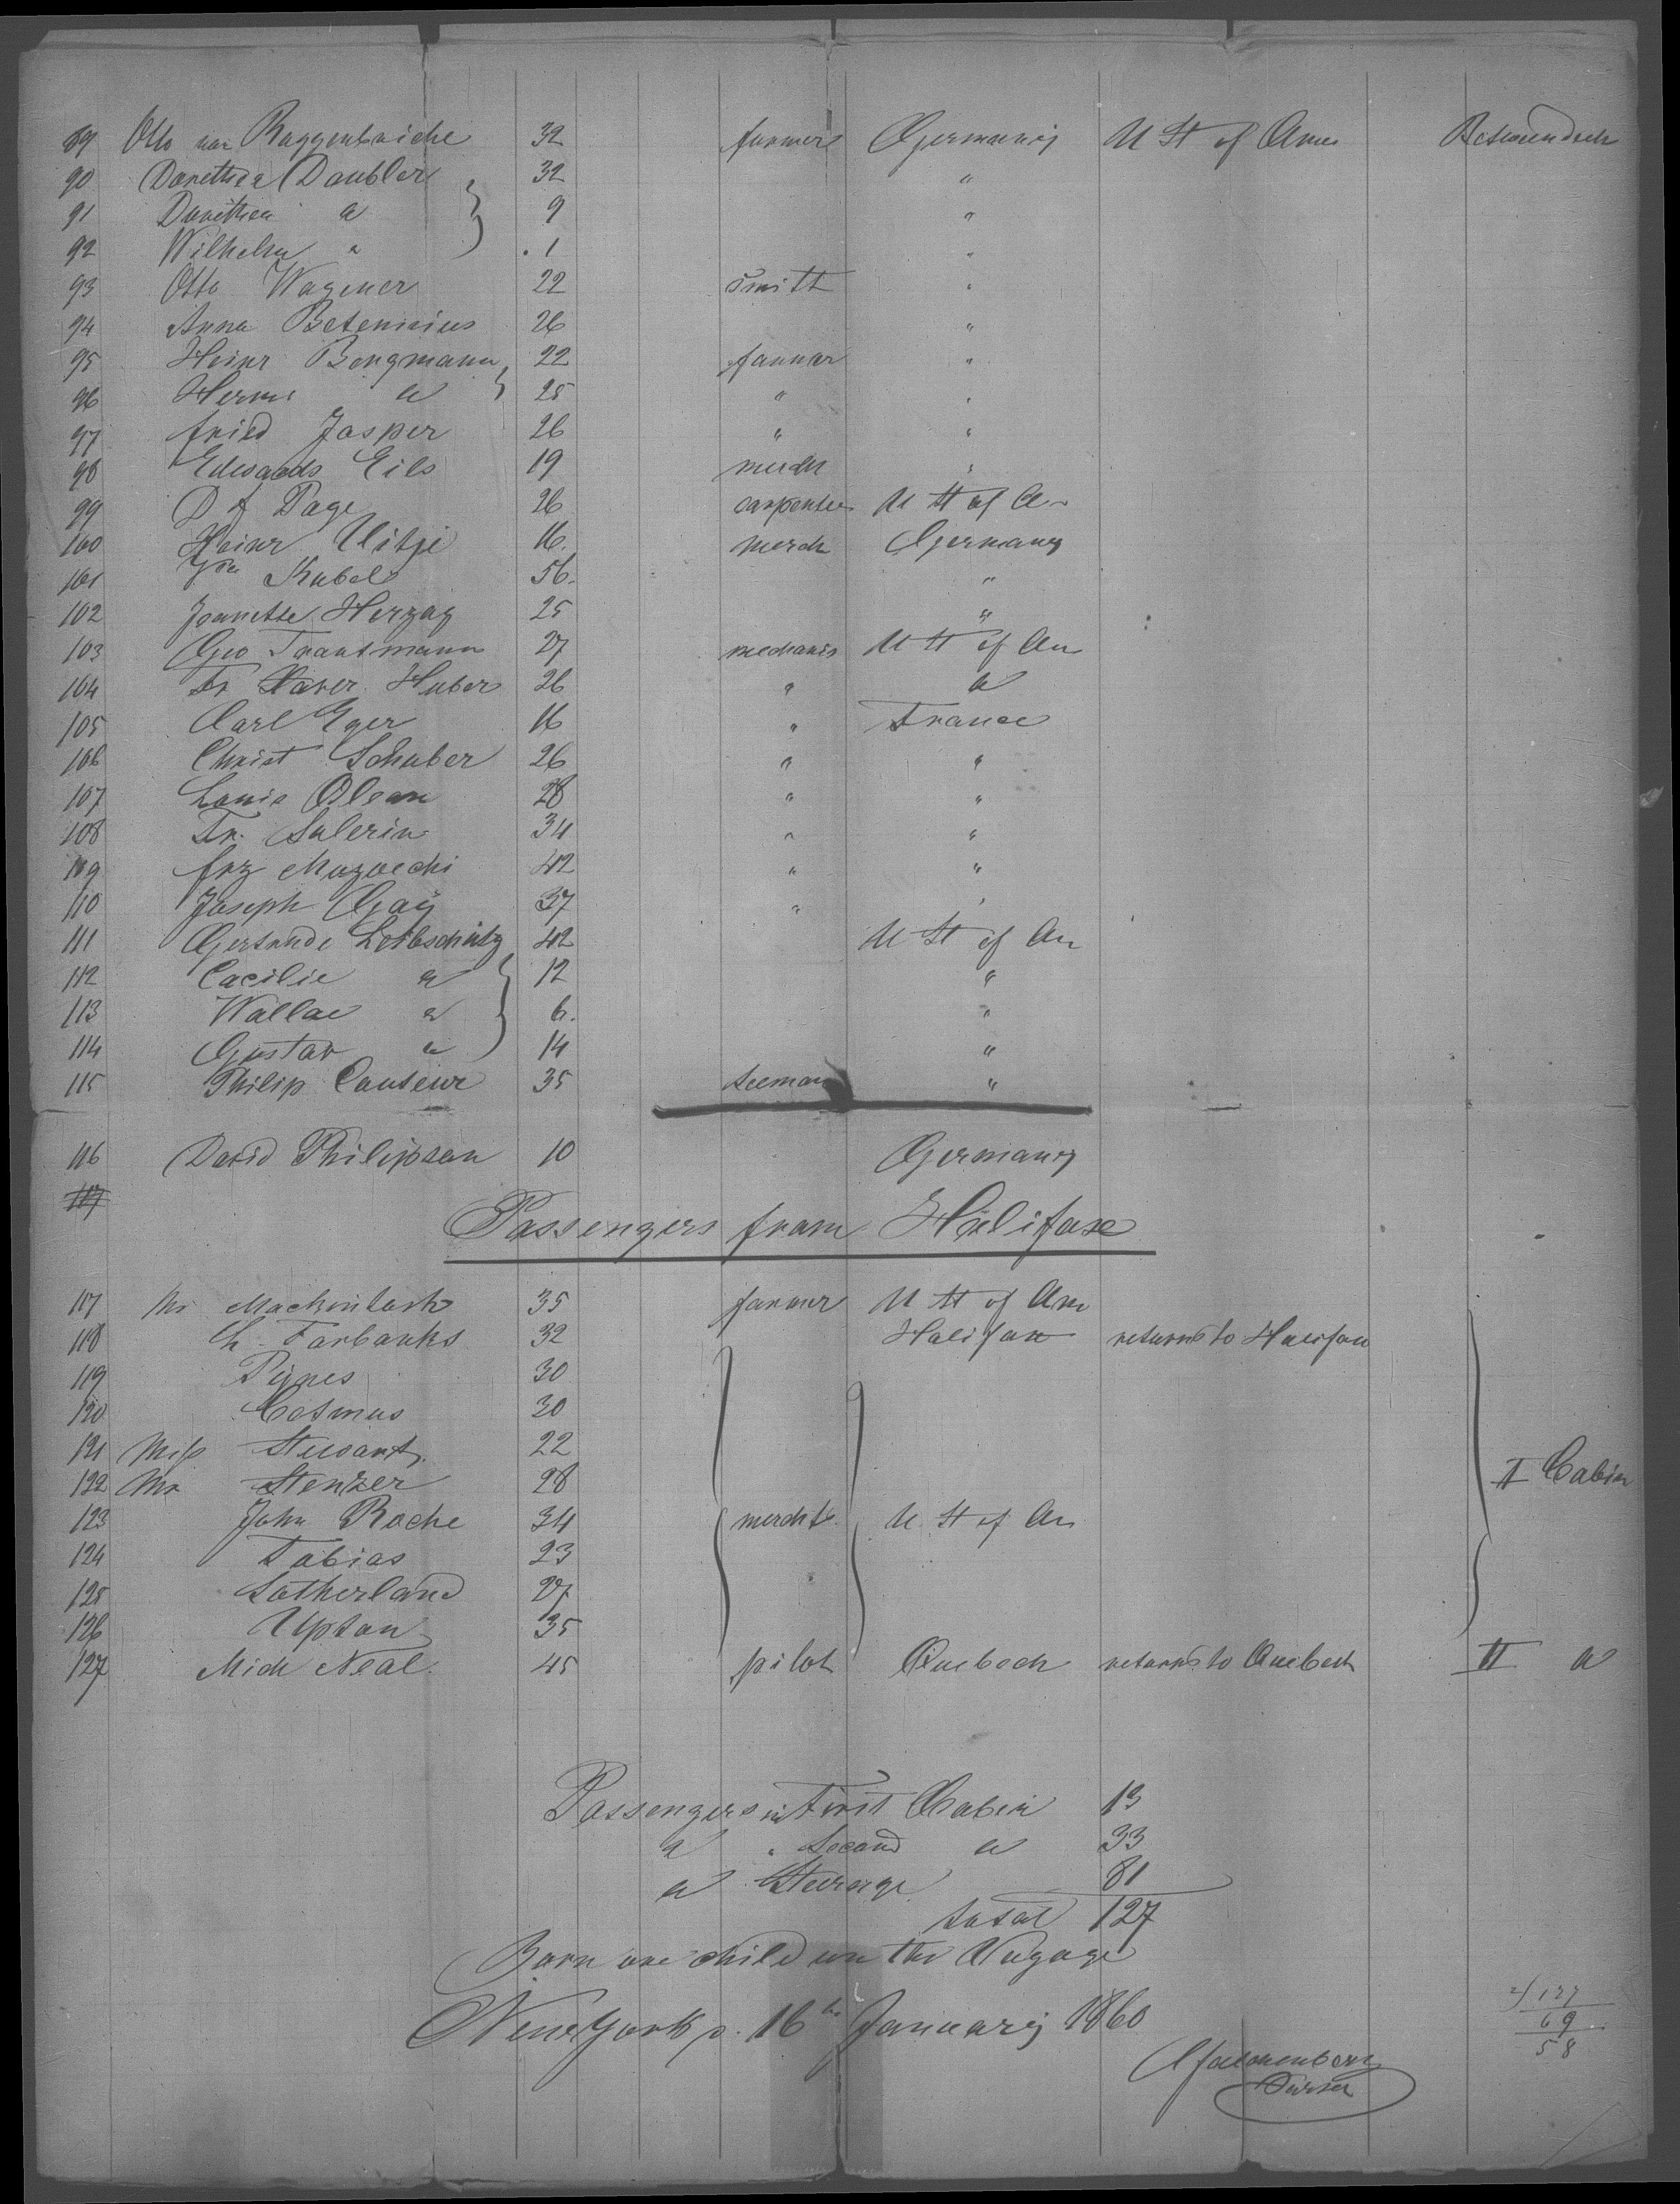 89 Otto von Roggenbricke 32 farmers Germany U St of Ame
90 Dorethea Daubler 32 "
91 Dorethea " 9 "
92 Wilhelm " 1 "
93 Otto Wagener 22 Smitt "
94 Anna Betenicius 26 "
95 Heinr Bergmann 22 farmer "
96 Herm " 25 " "
97 fried Jasper 26 " "
98 Edwards Eils 19 mercht "
99 D f Page 26 carpenter U St of A
100 Heinr Uitje 16. merch Germany
101 Kubel 56. "
102 Jeanette Herzog 25 "
103 Geo Trautmann 27 mechanic U St of Am
104 Fr Xaver Huber 26 " "
105 Carl Eger 16 " France
106 Christ Schuber 26 " "
107 Louis Olean 28 " "
108 Fr. Salerin 34 " "
109 frz Mozoechi 42 " "
110 Joseph Gay 37 " "
111 Gertrude Leibschutz 42 U St of Am
112 Cacilie " 12 "
113 Wallac " 6. "
114 Gustav " 14 "
115 Philip Couseur 35 seeman "
116 David Philipson 10 Germany
117
Passengers from Halifax
117 Mr Mackintosh 35 farmer U St of Am
118 Ch. Farbanks 32 Halifax returns to Halifax
119 Pynes 30
120 Cosmus 30
121 Miss Stewart. 22
122 Mr Stenzer 28 II Cabin
123 John Roche 34 merchts. U. St of Am
124 Tobias 23
125 Sotherland 27
126 Upton 35
127 Mich Neal. 45 pilot Quebeck returns to Quebeck II "
Passengers in First Cabin 13
" " Second " 33
" Steerage 81
total 127
Born one child on the Voyage
New York p. 16th January 1860
2) 127
69
58
Purser